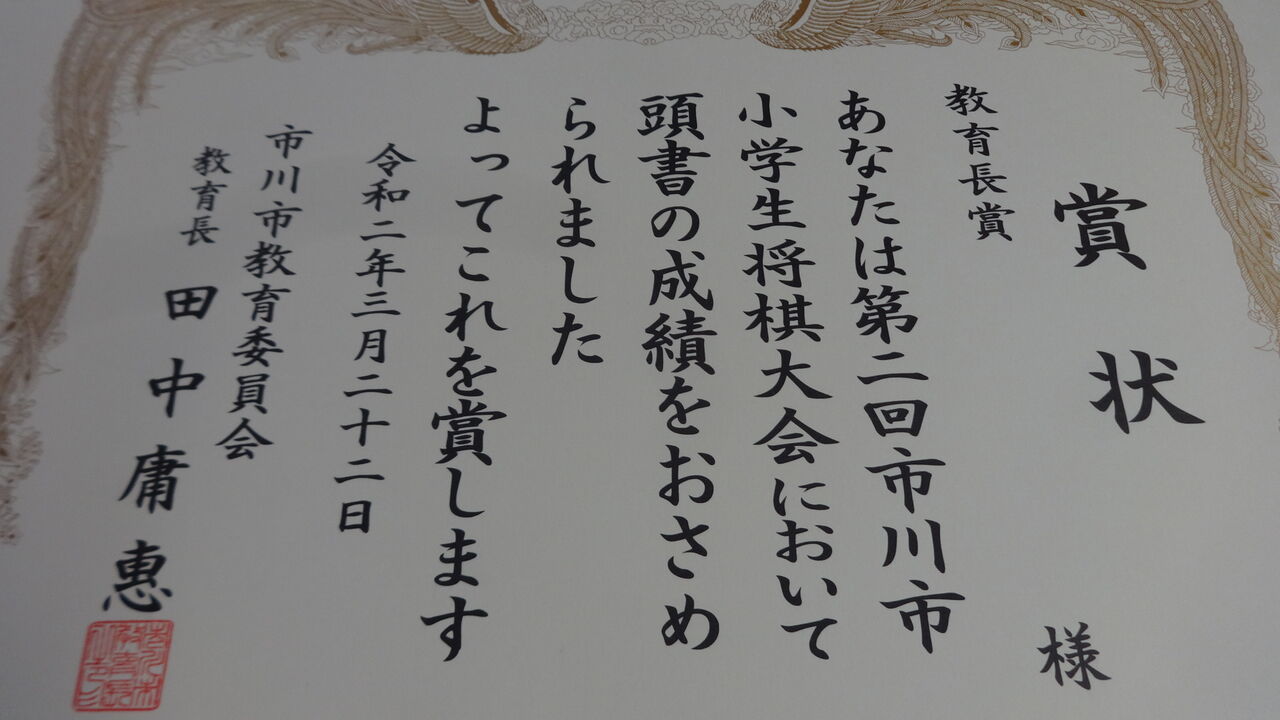 賞状
様
教育長賞
あなたは第二回市川市
小学生将棋大会において
頭書の成績をおさめ
られました
よってこれを賞します
令和二年三月二十二日
市川市教育委員会
教育長 田中庸惠